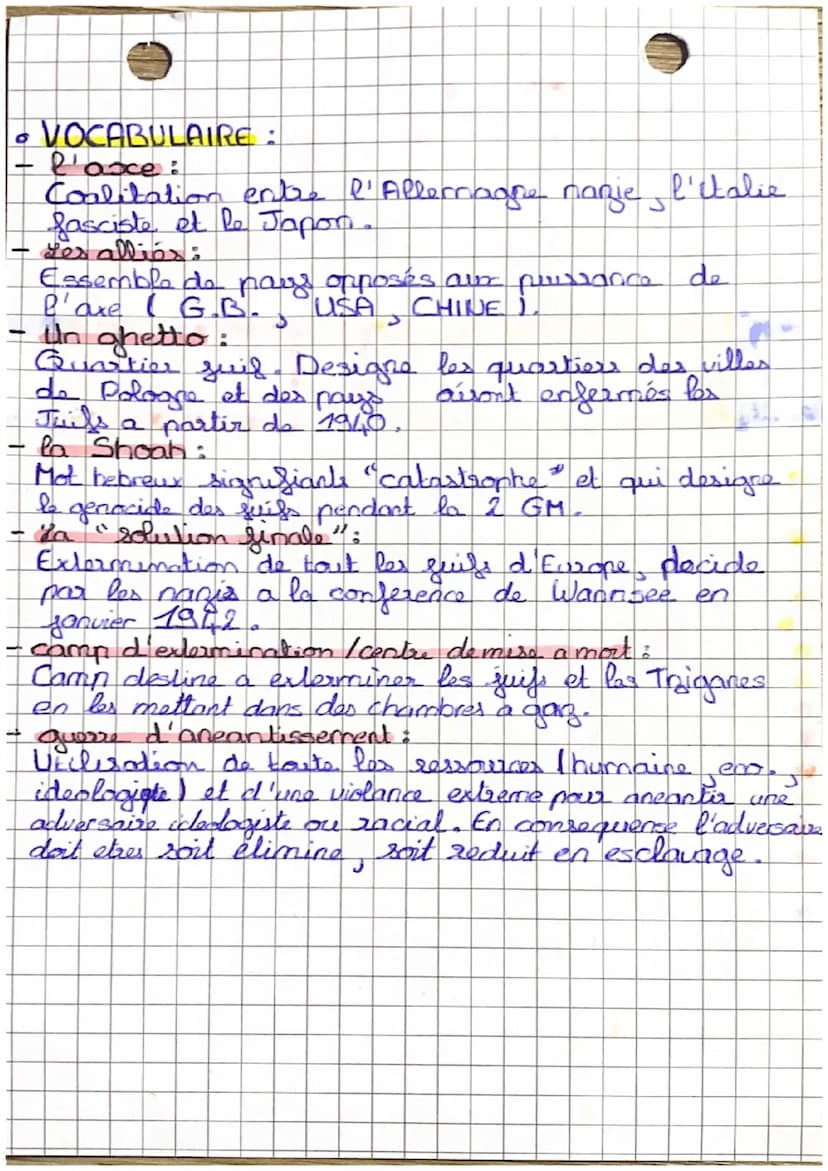 • VOCABULAIRE :
- l'axe :
Coalitation entre l'Allemagne nazie, l'Italie
fasciste et le Japon.
- Les alliés :
Essemble de pays opposés aux puissance de
l'axe ( G.B. , USA, CHINE ).
- Un ghetto :
Quartier juif. Designe les quartiers des villes
de Pologne et des pays enfermés les
Juifs a partir de 1940.
- la Shoah :
Mot hebreux signifiants "catastrophe" et qui designe
le genocide des juifs pendant la 2 GM.
- La "solution finale" :
Extermination de tout les juifs d'Europe, decide
par les nazis a la conference de Wannsee en
janvier 1942.
- camp d'extermination / centre de mise a mort :
Camp destine a exterminer les juifs et les Tziganes
en les mettant dans des chambres a gaz.
- guerre d'aneantissement :
Utilisation de toute les ressources (humaine, eco.,
ideologiqte) et d'une violance extreme pour aneantir une
adversaire ideologiste ou racial. En consequense l'adversaire
doit etres soit élimine, soit reduit en esclavage.